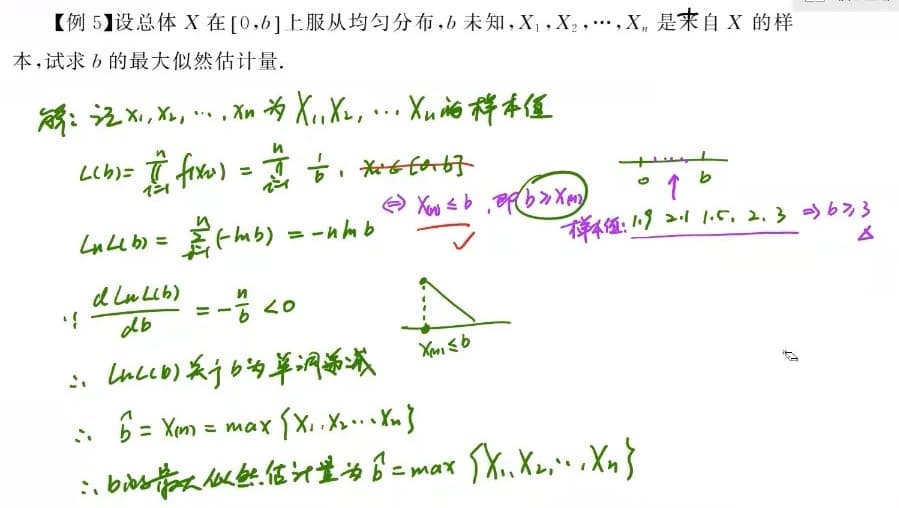 【例 5】设总体 X 在[0,b]上服从均匀分布,b 未知,X₁,X₂,…,Xₙ 是来自 X 的样
本,试求 b 的最大似然估计量.
解:记 x₁,x₂,…,xₙ 为 X₁,X₂,…Xₙ的样本值
L(b)=∏ᵢ₌₁ⁿ f(xᵢ) = ∏ᵢ₌₁ⁿ 1/b, xᵢ∈[0,b]
0 b
⇔ X₍ₙ₎≤b,即 b≥X₍ₙ₎
样本值: 1.9 2.1 1.5. 2. 3 ⇒ b≥3
lnL(b) = ∑ᵢ₌₁ⁿ(-lnb) = -nlnb
∵ dlnL(b)/db = -n/b <0
X₍ₙ₎≤b
∴ lnL(b)关于b为单调递减
∴ b̂ = X₍ₙ₎ = max{X₁,X₂…Xₙ}
∴ b的最大似然估计量为 b̂=max{X₁,X₂,…,Xₙ}